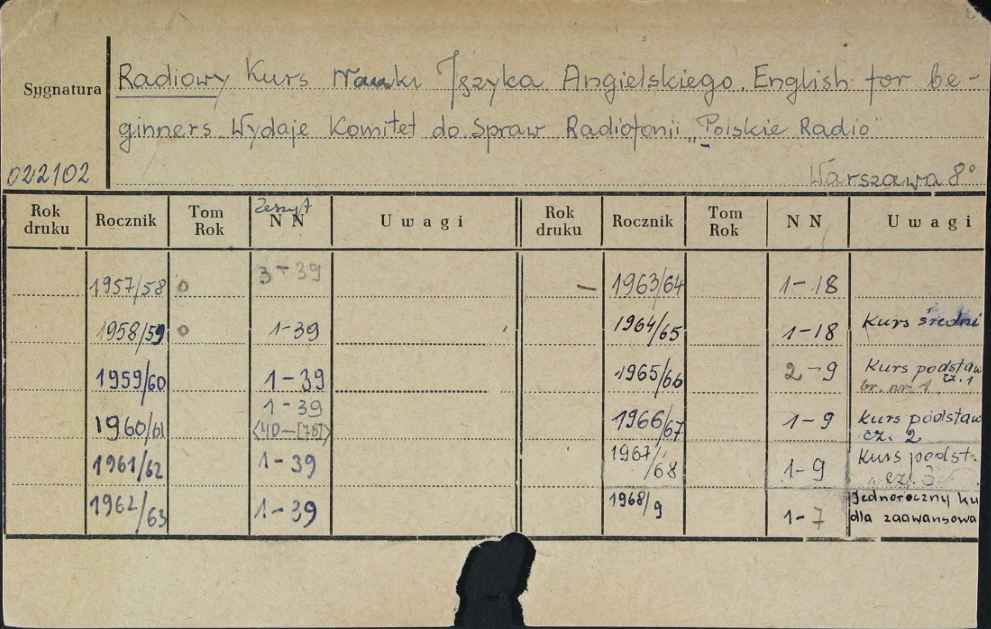 Sygnatura
Radiowy Kurs Nauki Języka Angielskiego. English for be-
ginners. Wydaje Komitet do Spraw Radiofonii „Polskie Radio"
022102
Warszawa 8°
Rok druku Rocznik Tom Rok Zeszyt N N Uwagi Rok druku Rocznik Tom Rok N N Uwagi
1957/58 o 3-39 — 1963/64 1-18
1958/59 o 1-39 1964/65 1-18 Kurs średni
1959/60 1-39 1965/66 2-9 Kurs podstaw cz. 1
br. nr. 1
1960/61 1-39 <40-[78]> 1966/67 1-9 Kurs podstaw cz. 2
1961/62 1-39 1967/68 1-9 Kurs podst. cz. 3
1962/63 1-39 1968/9 1-7 Jednoroczny ku
dla zaawansowa